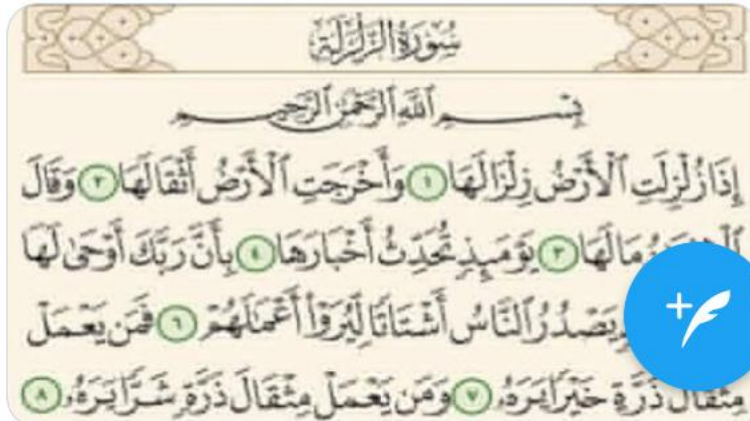 سُورَةُ الزَّلْزَلَةِ
بِسْمِ ٱللَّهِ ٱلرَّحْمَٰنِ ٱلرَّحِيمِ
إِذَا زُلْزِلَتِ ٱلْأَرْضُ زِلْزَالَهَا ١ وَأَخْرَجَتِ ٱلْأَرْضُ أَثْقَالَهَا ٢ وَقَالَ
مَا لَهَا ٣ يَوْمَئِذٍ تُحَدِّثُ أَخْبَارَهَا ٤ بِأَنَّ رَبَّكَ أَوْحَىٰ لَهَا
يَصْدُرُ ٱلنَّاسُ أَشْتَاتًا لِّيُرَوْا۟ أَعْمَٰلَهُمْ ٦ فَمَن يَعْمَلْ
مِثْقَالَ ذَرَّةٍ خَيْرًا يَرَهُۥ ٧ وَمَن يَعْمَلْ مِثْقَالَ ذَرَّةٍ شَرًّا يَرَهُۥ ٨